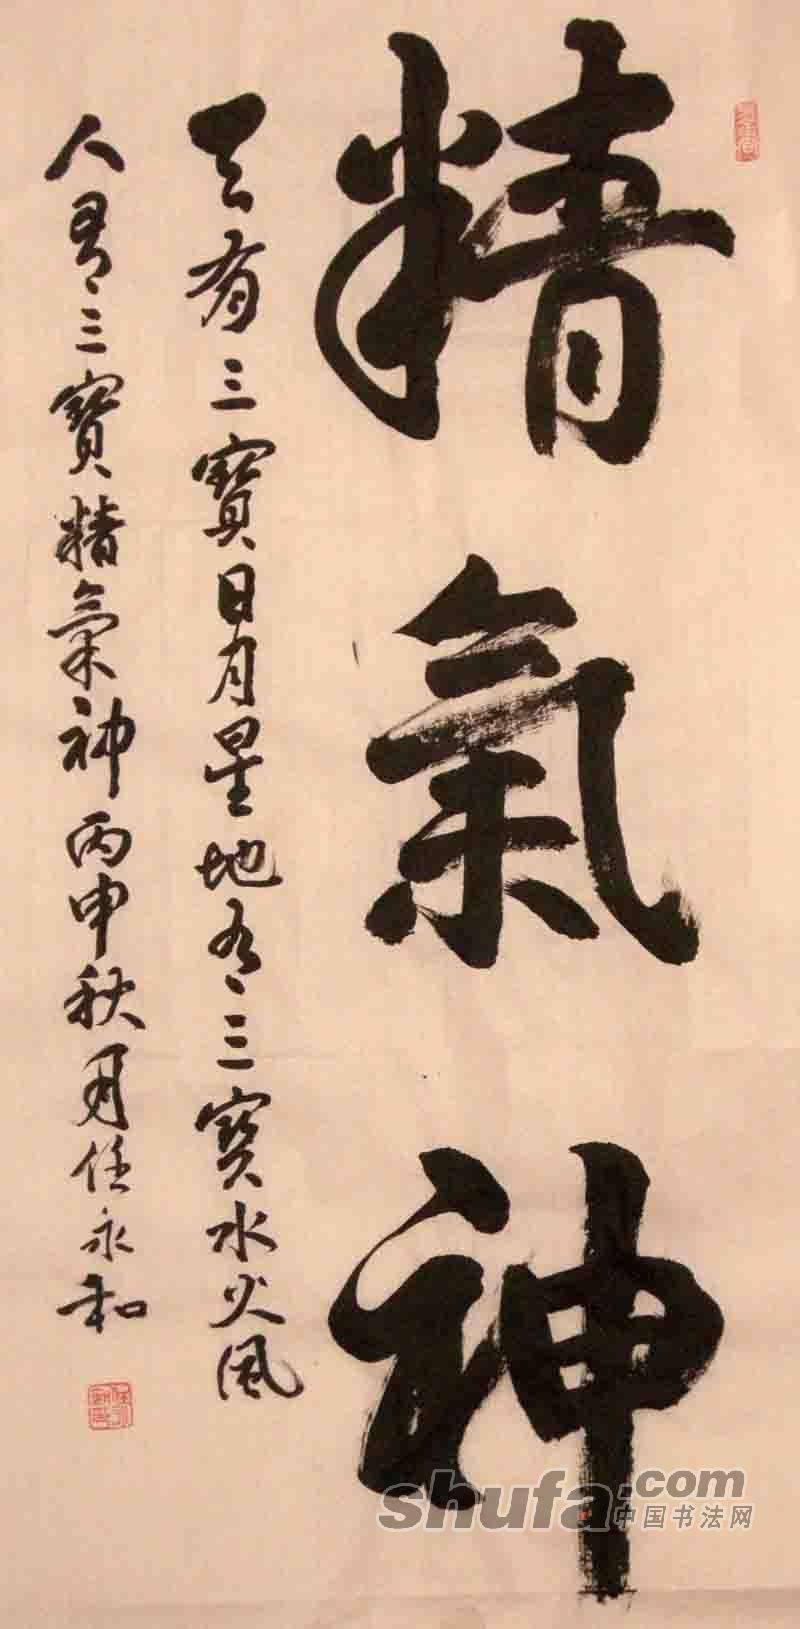 精氣神
天有三寶日月星地有三寶水火風
人有三寶精氣神丙申秋月任永和
shufa.com
中国书法网